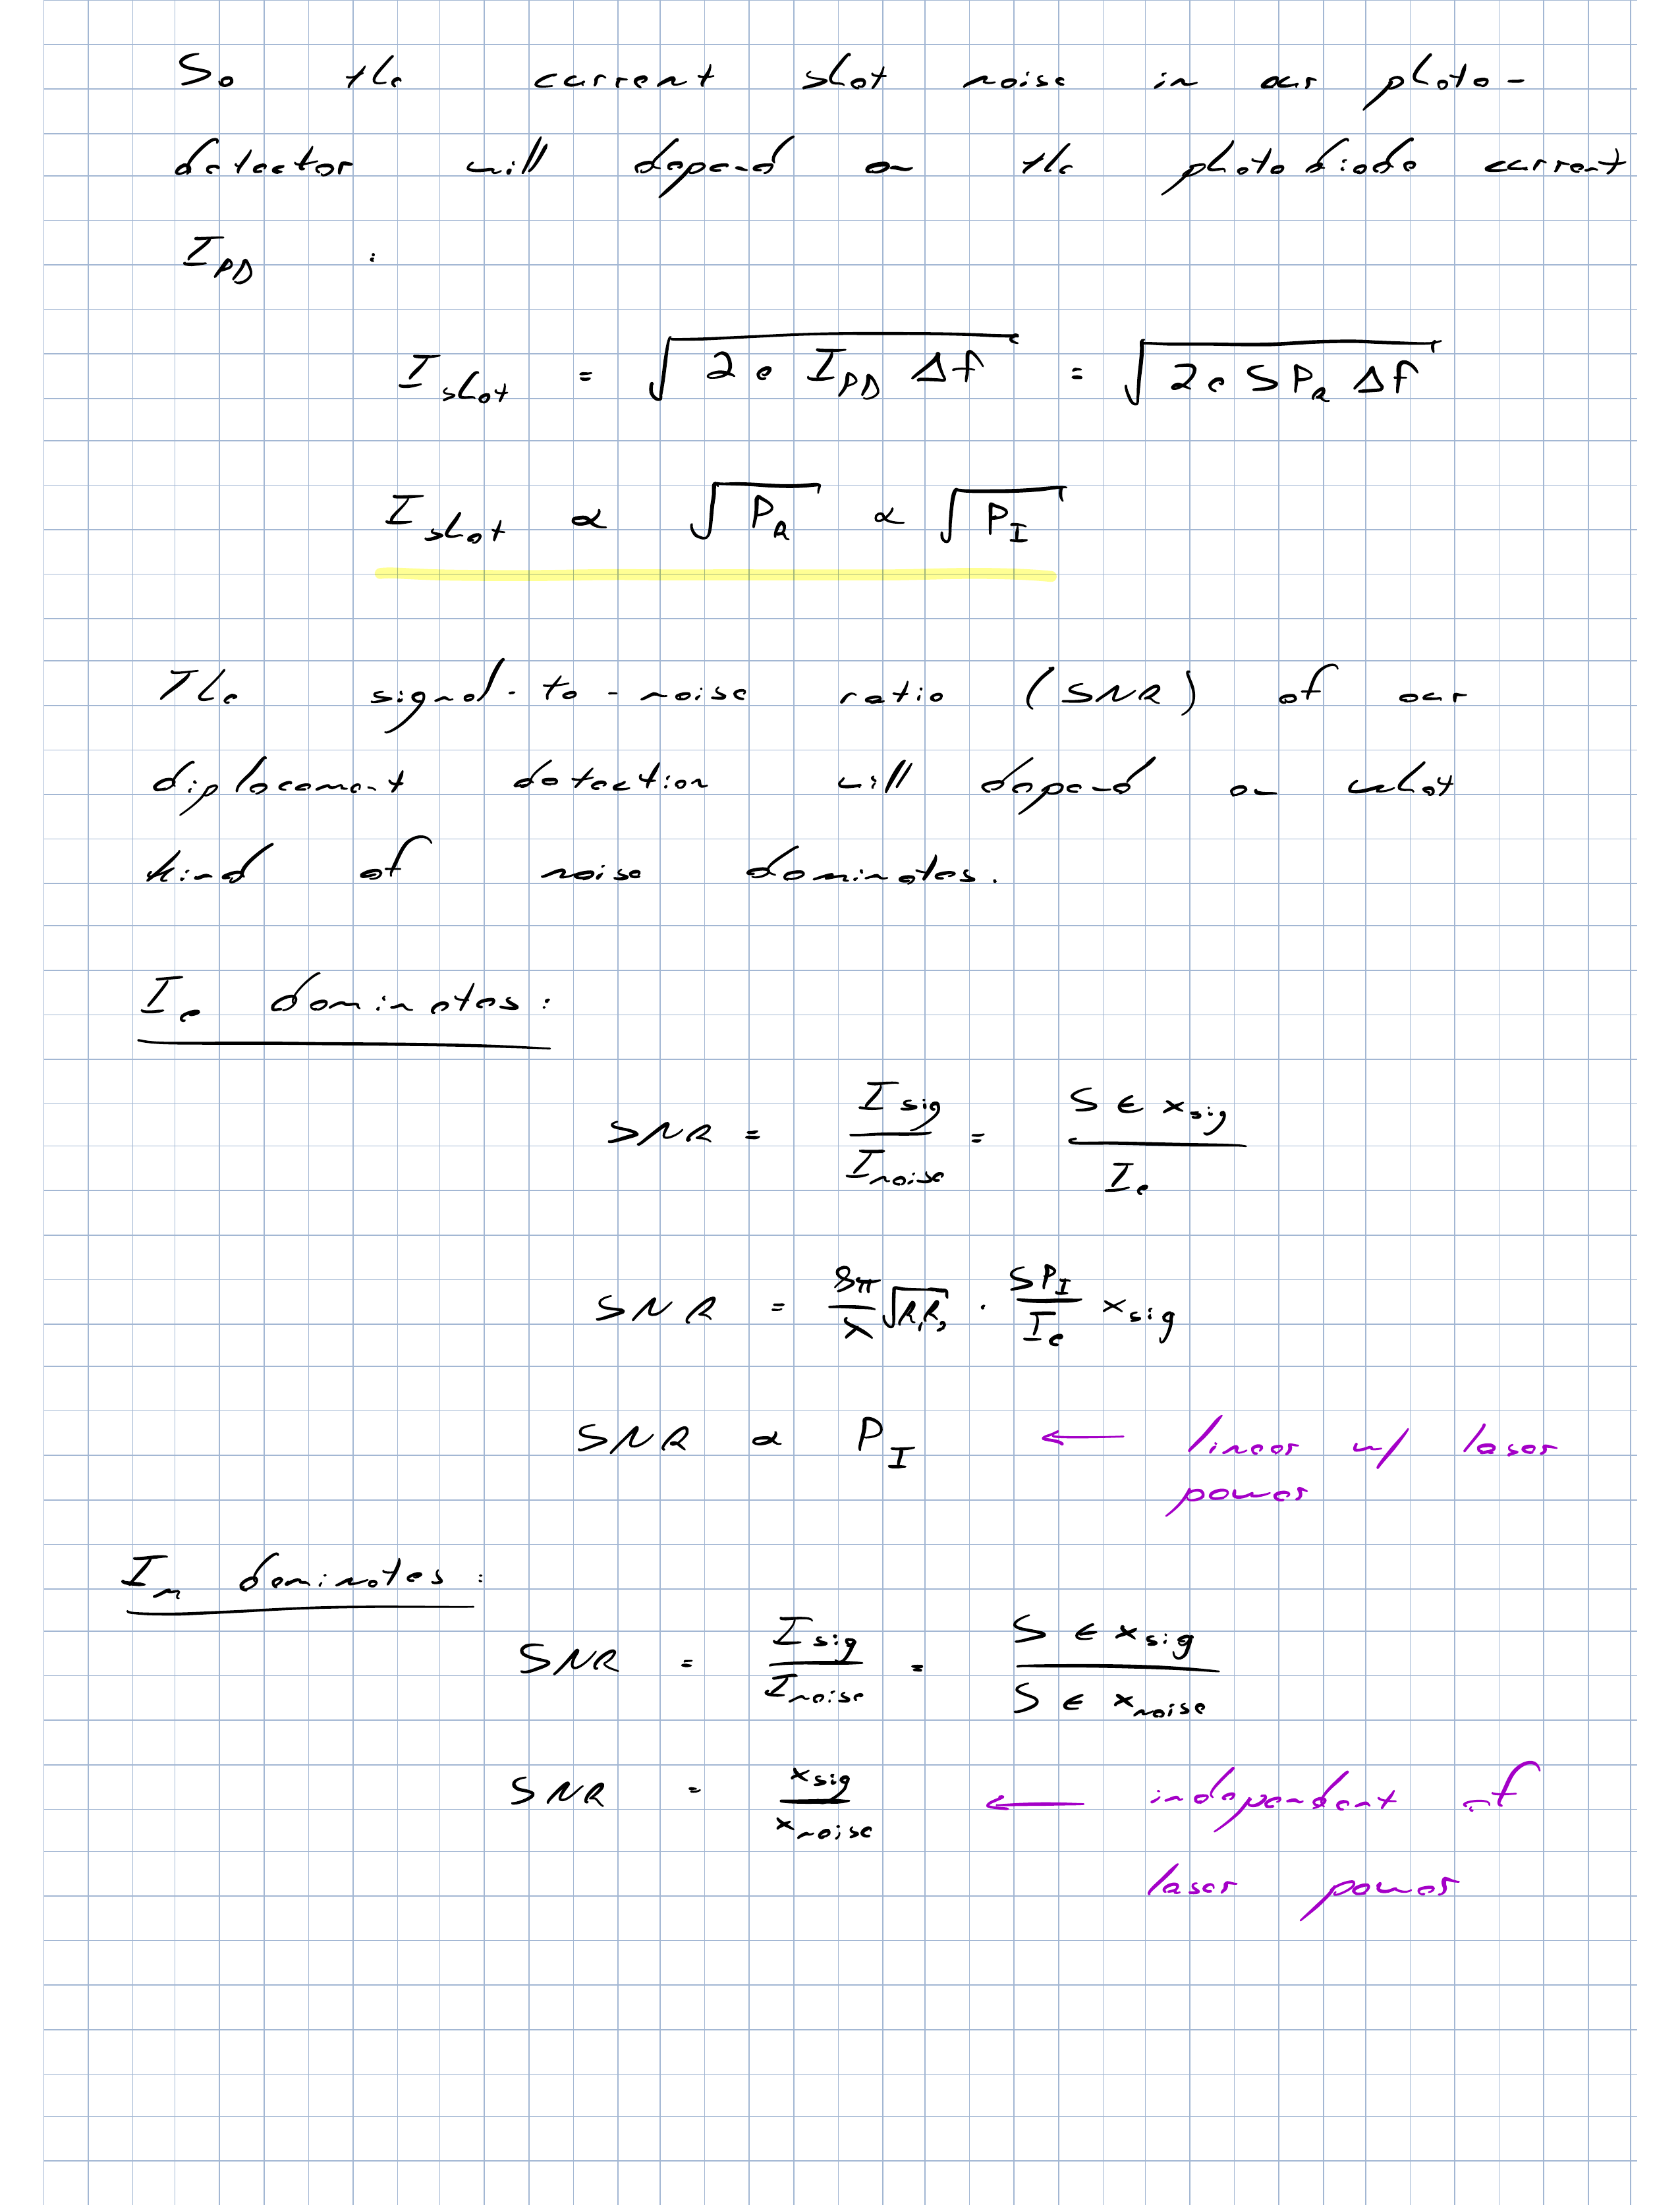 So the current shot noise in our photo-
detector will depend on the photodiode current
I_PD :
I_shot = √(2 e I_PD Δf) = √(2 e S P_R Δf)
I_shot ∝ √(P_R) ∝ √(P_I)
The signal-to-noise ratio (SNR) of our
diplacement detection will depend on what
kind of noise dominates.
I_e dominates:
SNR = I_sig / I_noise = S ϵ x_sig / I_e
SNR = 8π/λ √(R₁R₂) · S P_I / I_e x_sig
SNR ∝ P_I ← linear w/ laser
power
I_m dominates:
SNR = I_sig / I_noise = S ϵ x_sig / S ϵ x_noise
SNR = x_sig / x_noise ← independent of
laser power